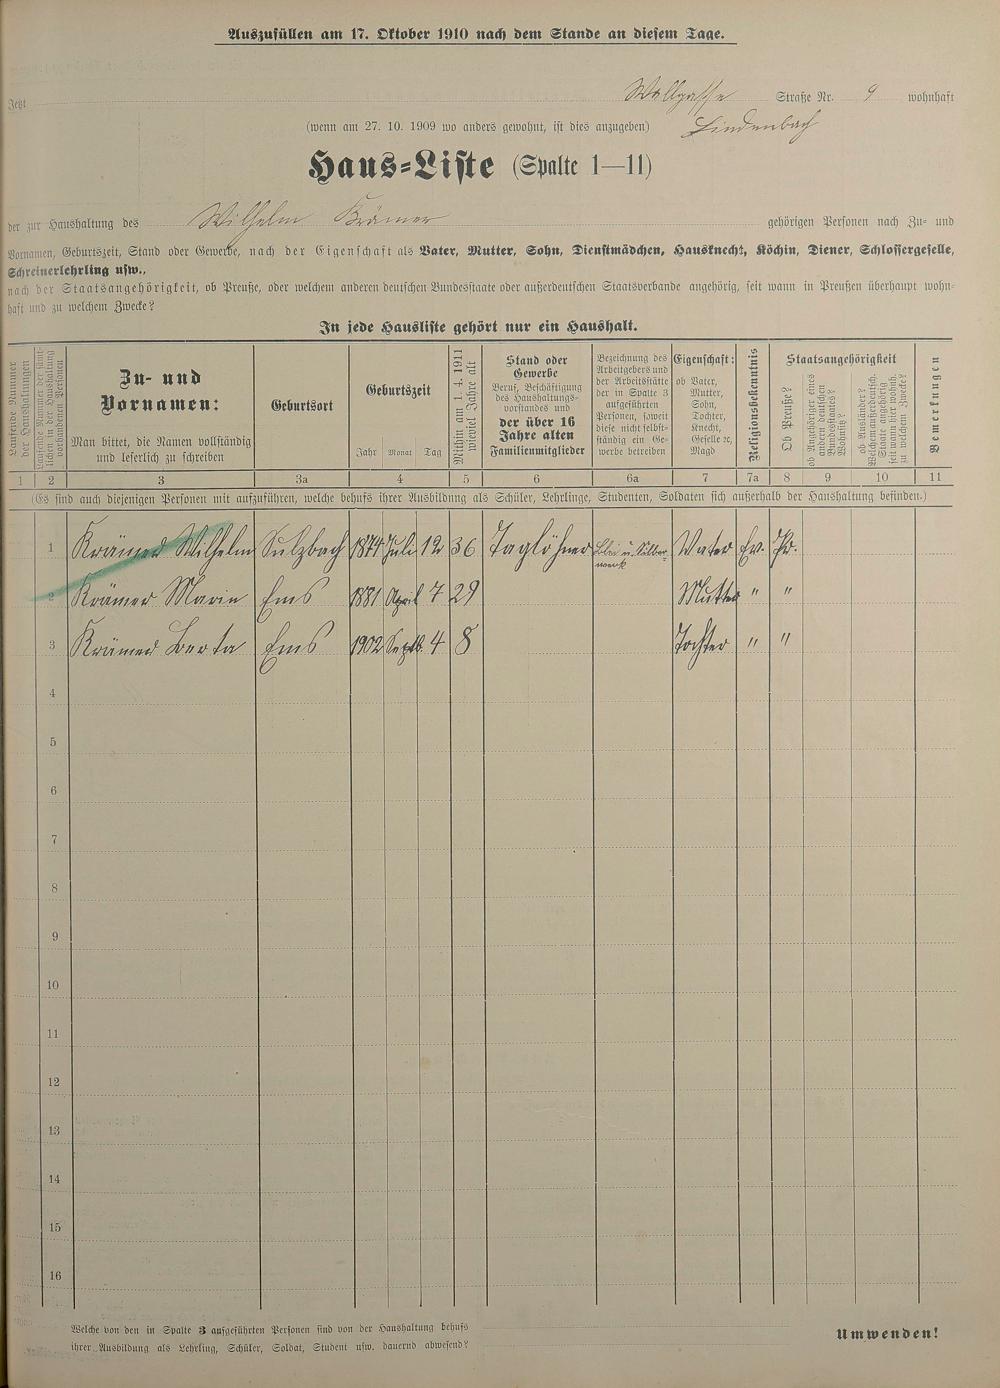 Auszufüllen am 17. Oktober 1910 nach dem Stande an diesem Tage.
Jetzt Wallgasse Straße Nr. 9 wohnhaft
(wenn am 27. 10. 1909 wo anders gewohnt, ist dies anzugeben) Lindenbach
Haus-Liste (Spalte 1—11)
der zur Haushaltung des Wilhelm Krämer gehörigen Personen nach Zu- und
Vornamen, Geburtszeit, Stand oder Gewerbe, nach der Eigenschaft als Vater, Mutter, Sohn, Dienstmädchen, Hausknecht, Köchin, Diener, Schlossergeselle,
Schreinerlehrling usw.,
nach der Staatsangehörigkeit, ob Preuße, oder welchem anderen deutschen Bundesstaate oder außerdeutschen Staatsverbande angehörig, seit wann in Preußen überhaupt wohn-
haft und zu welchem Zwecke?
In jede Hausliste gehört nur ein Haushalt.
Laufende Nummer der Haushaltungen
Laufende Nummer der sämt-
lichen in der Haushaltung
vorhandenen Personen
Zu- und
Vornamen:
Man bittet, die Namen vollständig
und leserlich zu schreiben
Geburtsort
Geburtszeit
Jahr Monat Tag
Mithin am 1. 4. 1911
wieviel Jahre alt
Stand oder
Gewerbe
Beruf, Beschäftigung
des Haushaltungs-
vorstandes und
der über 16
Jahre alten
Familienmitglieder
Bezeichnung des
Arbeitgebers und
der Arbeitsstätte
der in Spalte 3
aufgeführten
Personen, soweit
diese nicht selbst-
ständig ein Ge-
werbe betreiben
Eigenschaft:
ob Vater,
Mutter,
Sohn,
Tochter,
Knecht,
Geselle ec,
Magd
Religionsbekenntnis
Staatsangehörigkeit
Ob Preuße?
ob Angehöriger eines
andern deutschen
Bundesstaates?
Wohnsitz?
ob Ausländer?
Welchem außerdeutsch.
Staate angehörig
seit wann hier wohnh.
zu welchem Zwecke?
Bemerkungen
1 2 3 3a 4 5 6 6a 7 7a 8 9 10 11
(Es sind auch diejenigen Personen mit aufzuführen, welche behufs ihrer Ausbildung als Schüler, Lehrlinge, Studenten, Soldaten sich außerhalb der Haushaltung befinden.)
1 Krämer Wilhelm Sulzbach 1874 Juli 12 36 Taglöhner Blei u. Silber-
werk Vater Ev. Pr.
2 Krämer Marie Ems 1881 April 7 29 Mutter " "
3 Krämer Berta Ems 1902 Septb. 4 8 Tochter " "
4
5
6
7
8
9
10
11
12
13
14
15
16
Welche von den in Spalte 3 aufgeführten Personen sind von der Haushaltung behufs
ihrer Ausbildung als Lehrling, Schüler, Soldat, Student usw. dauernd abwesend?
Umwenden!